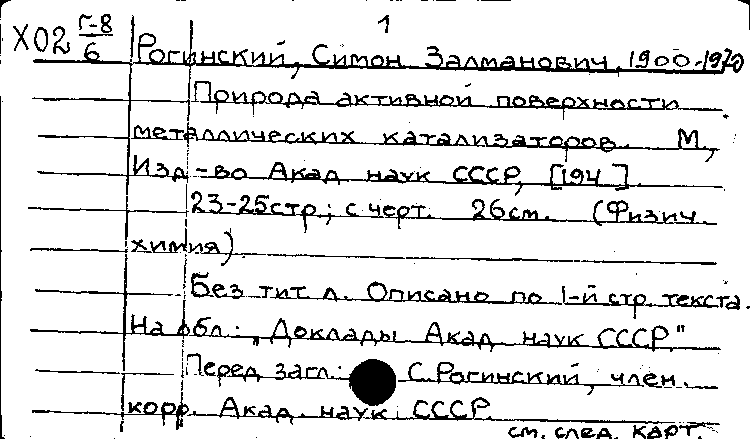 1
X02 Г-8/6
Рогинский, Симон Залманович, 1900-1970
Природа активной поверхности
металлических катализаторов. М.,
Изд-во Акад наук СССР, [194 ].
23-25стр.; с черт. 26см. (Физич.
химия).
Без тит л. Описано по 1-й стр. текста.
На обл.: "Доклады Акад наук СССР."
Перед загл.: С.Рогинский, член.
корр. Акад. наук СССР.
см. след. карт.